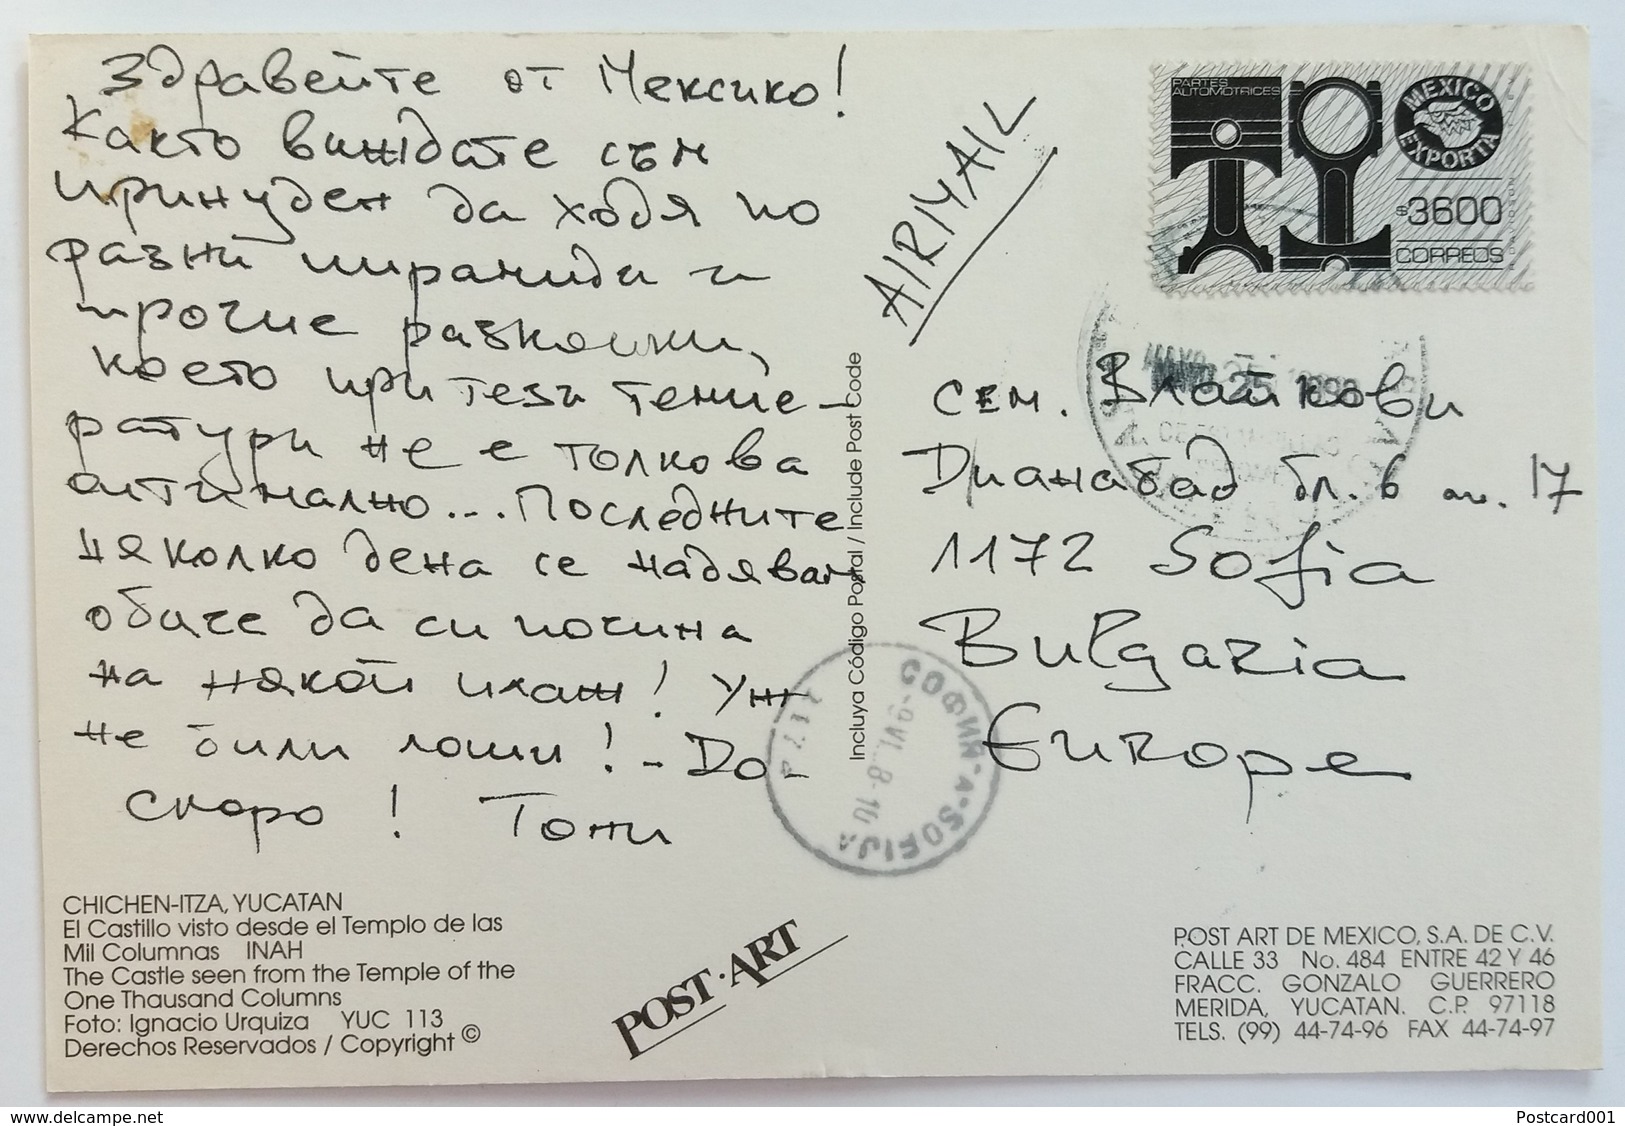 Здравейте от Мексико!
Както виждате съм
принуден да ходя по
разни пирамиди и
прочие разкошки,
което при тези темпе-
ратури не е толкова
оптимално... Последните
няколко дена се надявам
обаче да си почина
на някой плаж! Уж
не били лоши! - До-
скоро! Тони
CHICHEN-ITZA, YUCATAN
El Castillo visto desde el Templo de las
Mil Columnas INAH
The Castle seen from the Temple of the
One Thausand Columns
Foto: Ignacio Urquiza YUC 113
Derechos Reservados / Copyright ©
Incluya Código Postal / Include Post Code
POST·ART
AIRMAIL
PARTES
AUTOMOTRICES
MEXICO
EXPORTA
$3600
CORREOS
сем. Влайкови
Дианабад бл. 6 ап. 17
1172 Sofia
Bulgaria
Europe
СОФИЯ "А" SOFIJA
POST ART DE MEXICO, S.A. DE C.V.
CALLE 33 No. 484 ENTRE 42 Y 46
FRACC. GONZALO GUERRERO
MERIDA, YUCATAN. C.P. 97118
TELS. (99) 44-74-96 FAX 44-74-97
www.delcampe.net
Postcard001